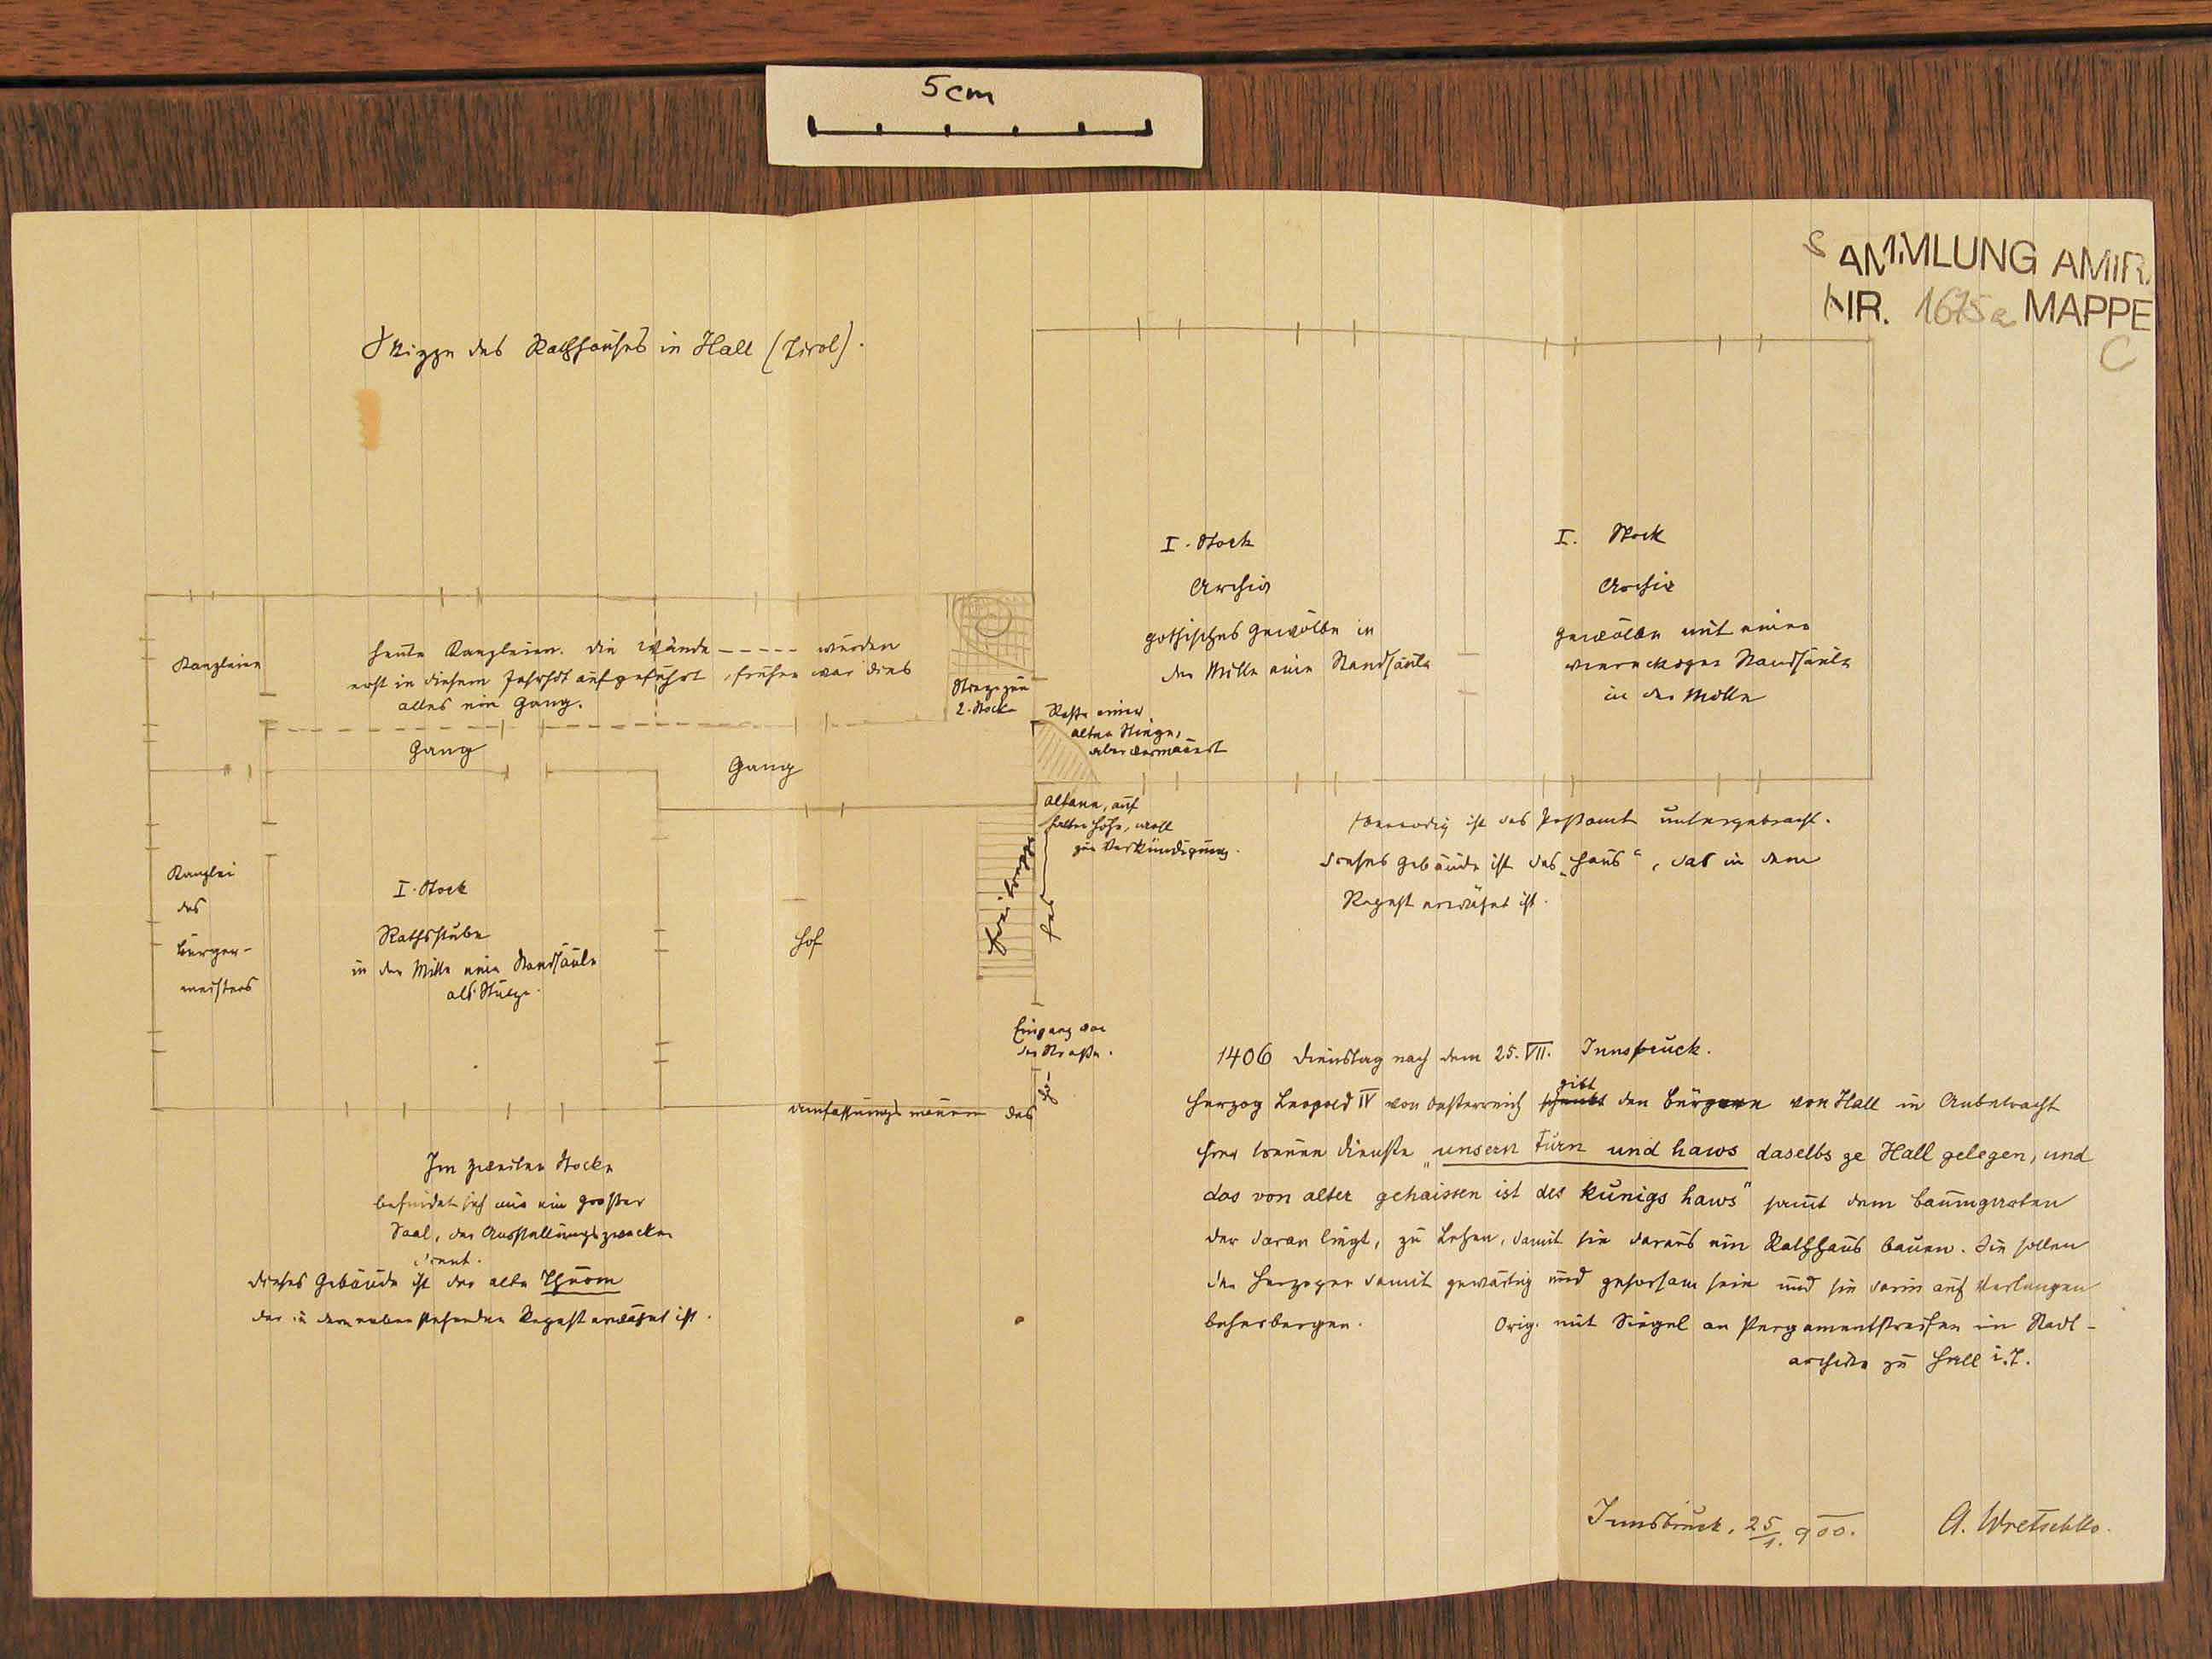 5cm
SAMMLUNG AMIRA
NR. 1675a MAPPE
C
Skizze des Rathhauses in Hall (Tirol).
I. Stock
Archiv
gothisches Gewölbe in
der Mitte eine Standsäule
I. Stock
Archiv
Gewölbe mit einer
viereckigen Standsäule
in der Mitte
Kanzleien
heute Kanzleien. Die Wände ----- wurden
erst in diesem Jahrhdt aufgeführt, früher war dies
alles ein Gang.
Stiege zum
2. Stock
Reste einer
alten Stiege,
aber vermauert
Gang
Gang
Altane, auf
halber Höhe, wohl
zur Verkündigung.
Freitreppe
Ebenerdig ist das Postamt untergebracht.
Dieses Gebäude ist das „Haus“, das in dem
Regest erwähnt ist.
Kanzlei
des
Bürger-
meisters
I. Stock
Rathsstube
in der Mitte eine Standsäule
als Stütze.
Hof
Eingang von
der Straße.
Umfassungsmauern des
Im zweiten Stocke
befindet sich nur ein großer
Saal, der Ausstellungszwecken
dient.
Dieses Gebäude ist der alte Thurm
der in dem nebenstehenden Regest erwähnt ist.
1406 Dienstag nach dem 25. VII. Innsbruck.
Herzog Leopold IV von Oesterreich schenkt gibt den Bürgern von Hall in Anbetracht
ihrer treuen Dienste „unsern turn und haws daselbs ze Hall gelegen, und
das von alter gehaissen ist des kunigs haws“ samt dem Baumgarten
der daran liegt, zu Lehen, damit sie daraus ein Rathhaus bauen. Sie sollen
den Herzogen damit gewärtig und gehorsam sein und sie darin auf Verlangen
beherbergen. Orig. mit Siegel an Pergamentstreifen im Stadt-
archive zu Hall i. T.
Innsbruck, 25/1. 900. A. Wretschko.